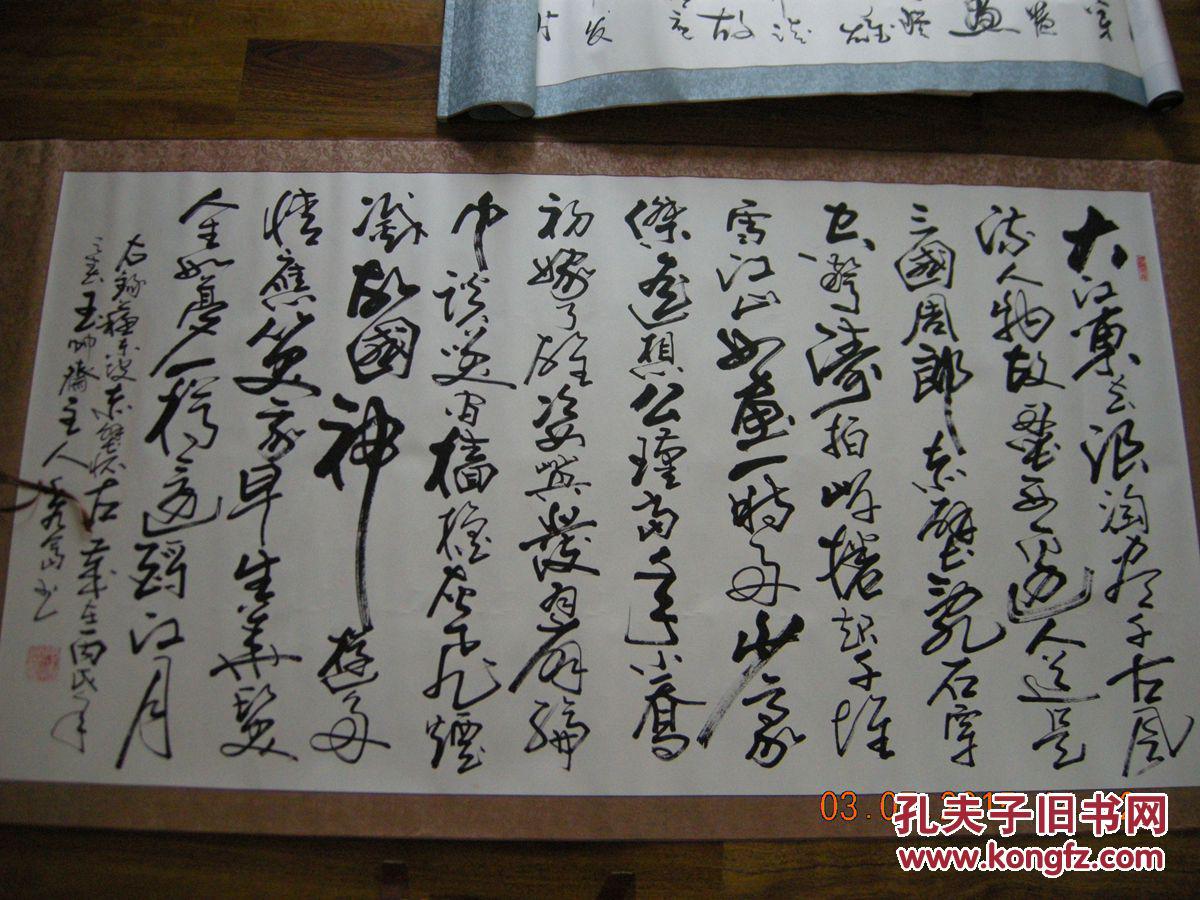 大江東去浪淘盡千古風
流人物故壘西邊人道是
三國周郎赤壁亂石穿
空驚濤拍岸捲起千堆
雪江山如畫一時多少豪
傑遙想公瑾當年小喬
初嫁了雄姿英發羽扇綸
巾談笑間檣櫓灰飛煙
滅故國神遊多
情應笑我早生華髮
人生如夢一樽還酹江月
右錄蘇東坡赤壁懷古歲在丙戌年
齋主人
故
03.0
孔夫子旧书网
www.kongfz.com